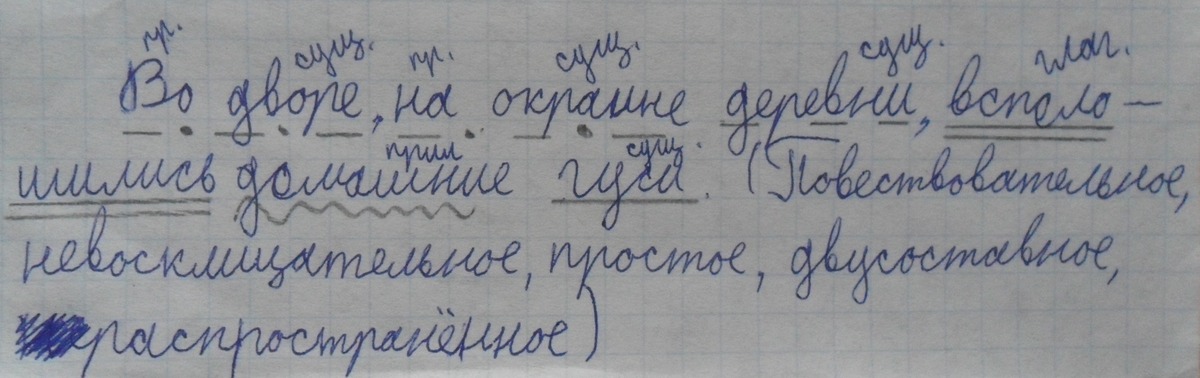 пр. сущ. пр. сущ. сущ. глаг.
Во дворе, на окраине деревни, всполо-
прил сущ.
шились домашние гуси. (Повествовательное,
невосклицательное, простое, двусоставное,
распространённое)